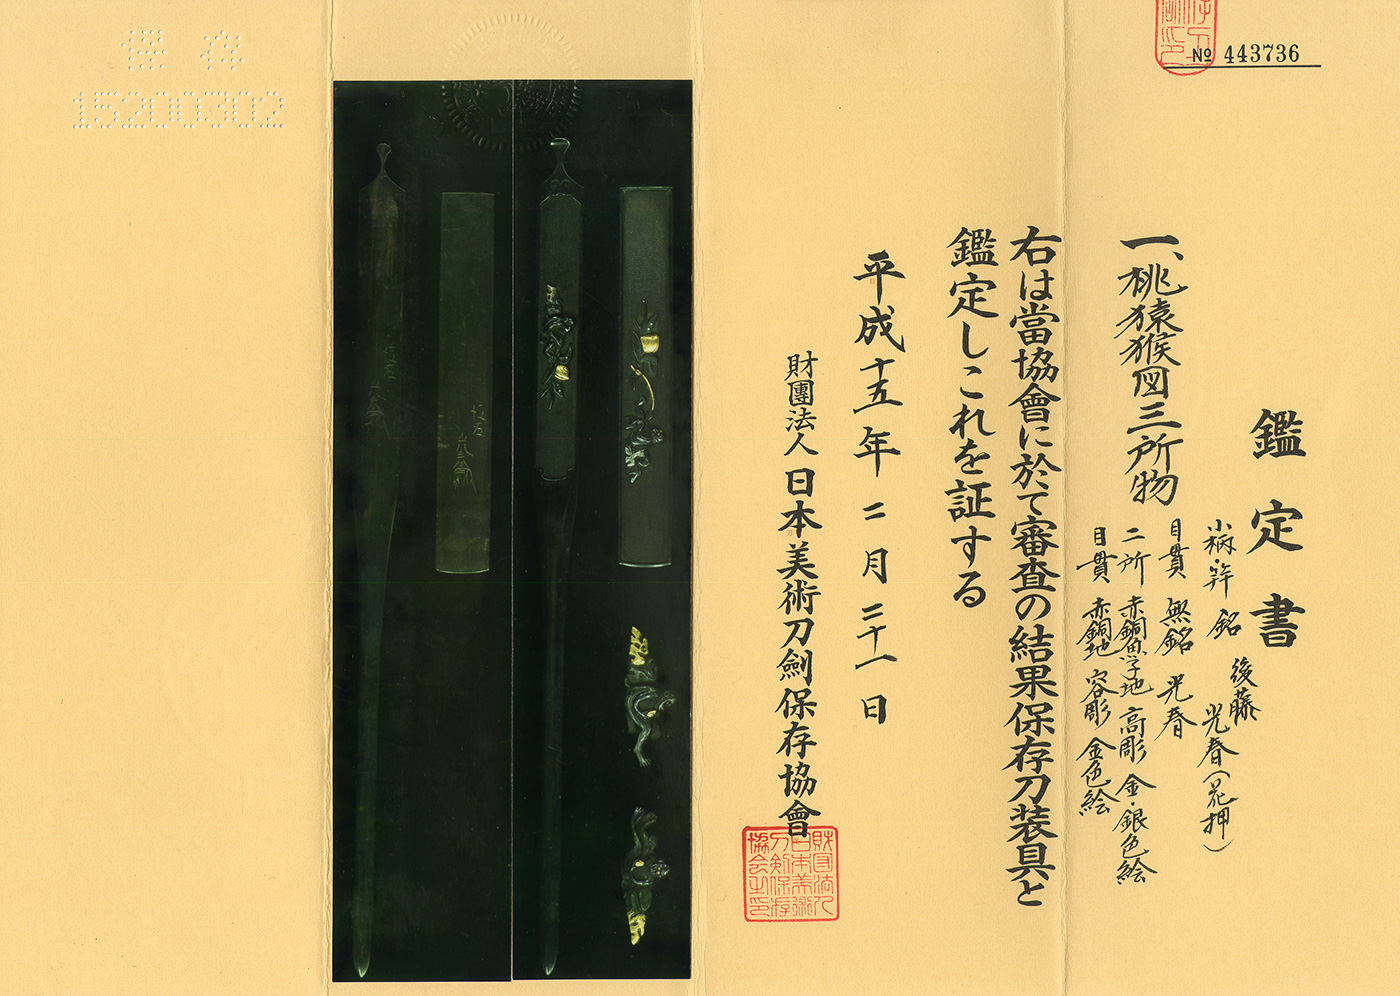 № 443736
鑑定書
一、桃猿猴図三所物
小柄笄 銘 後藤光春(花押)
目貫 無銘 光春
二所 赤銅魚子地 高彫 金・銀色絵
目貫 赤銅地 容彫 金色絵
右は當協會に於て審査の結果保存刀装具と
鑑定しこれを証する
平成十五年二月二十一日
財團法人 日本美術刀劍保存協會
財団法人
日本美術
刀剣保存
協会之印
保存
15200302